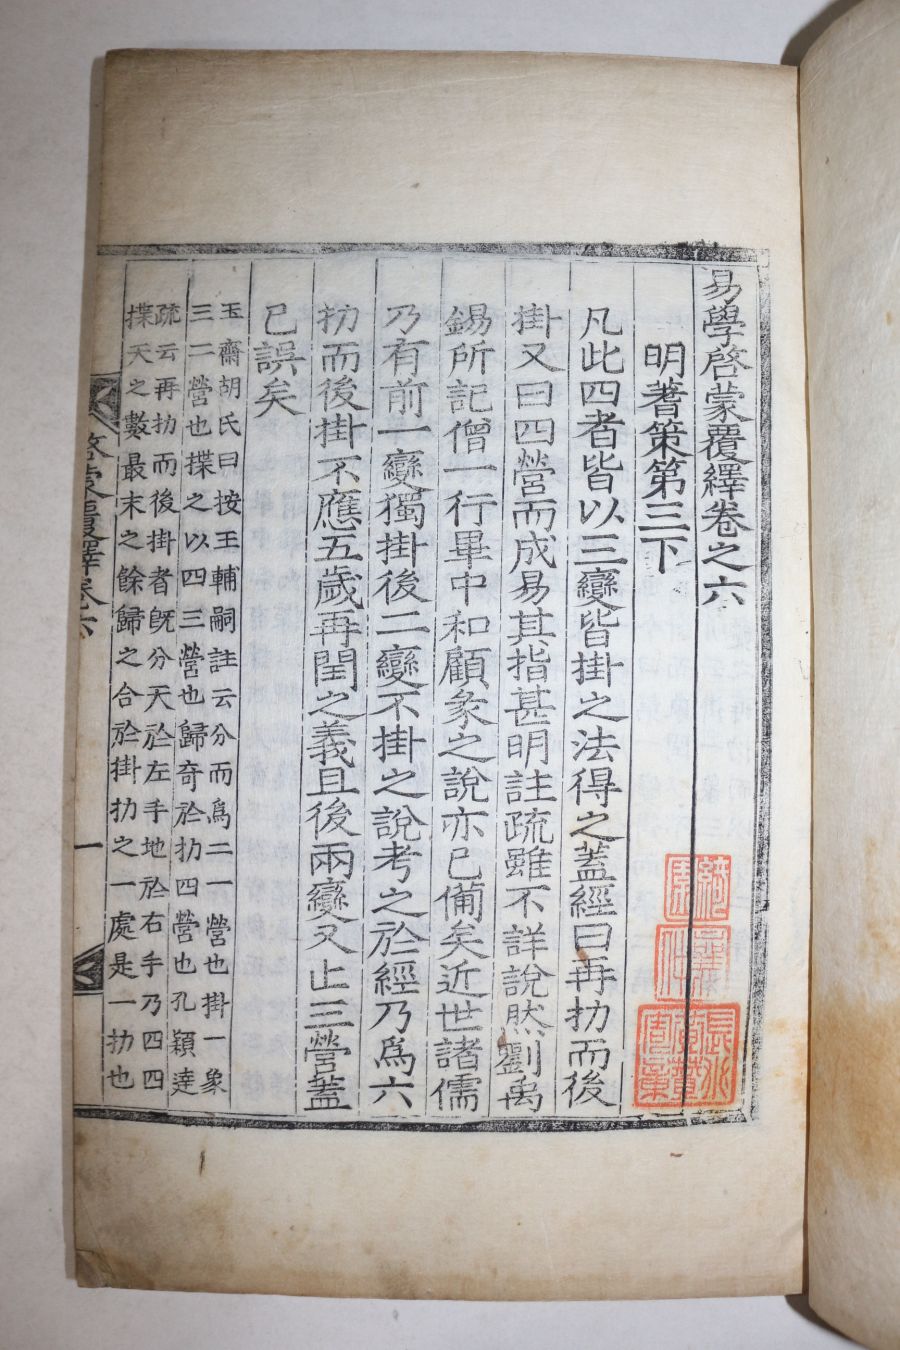 易學啓蒙覆繹卷之六
明蓍策第三下
凡此四者皆以三變皆掛之法得之蓋經曰再扐而後
掛又曰四營而成易其指甚明註疏雖不詳說然劉禹
錫所記僧一行畢中和顧彖之說亦已備矣近世諸儒
乃有前一變獨掛後二變不掛之說考之於經乃爲六
扐而後掛不應五歲再閏之義且後兩變又止三營蓋
已誤矣
玉齋胡氏曰按王輔嗣註云分而爲二一營也掛一象
三二營也揲之以四三營也歸奇於扐四營也孔穎達
疏云再扐而後掛者旣分天於左手地於右手乃四四
揲天之數最末之餘歸之合於掛扐之一處是一扐也
啓蒙覆繹卷六
一